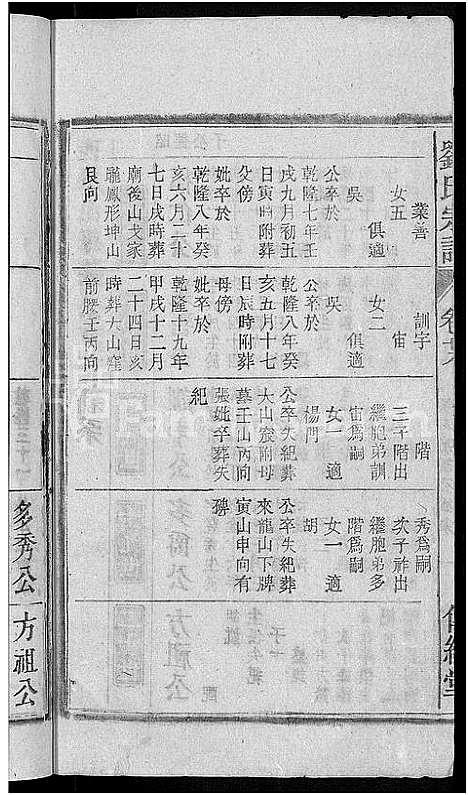 劉氏宗譜
業善
女五
俱適
吳
公卒於
乾隆七年壬
戌九月初五
日寅時附葬
父傍
妣卒於
乾隆八年癸
亥六月二十
七日戌時葬
廟後山戈家
隴鳳形坤山
艮向
訓字
宙
女二
俱適
吳
公卒於
乾隆八年癸
亥五月十七
日辰時附葬
母傍
妣卒於
乾隆十九年
甲戌十二月
二十四日亥
時葬大山窪
前腰壬丙向
階
三子階出
繼胞弟訓
宙爲嗣
女一適
楊門
公卒失紀葬
大山 附母
墓壬山丙向
張妣卒葬失
紀
秀爲嗣
次子祚出
繼胞弟多
階爲嗣
女一適
胡
公卒失紀葬
來龍山下牌
寅山申向有
碑
多秀公
方祖公